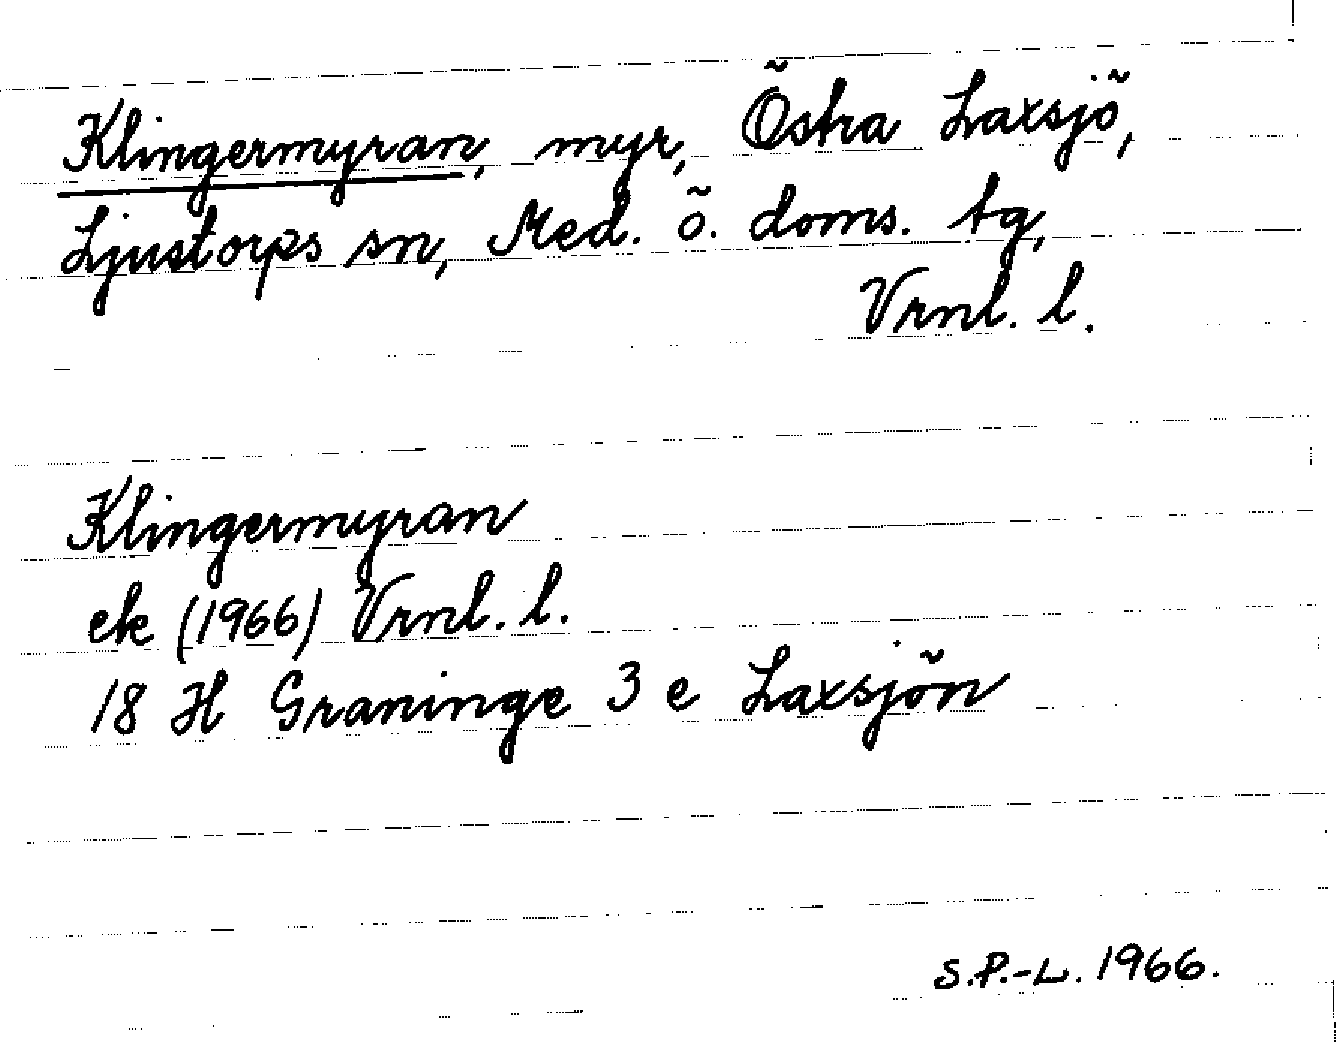 Klingermyran, myr, Östra Laxsjö,
Ljustorps sn, Med. ö. doms. tg,
Vrnl. l.
Klingermyran
ek (1966) Vrnl. l.
18 H Graninge 3 e Laxsjön
S.P.-L. 1966.